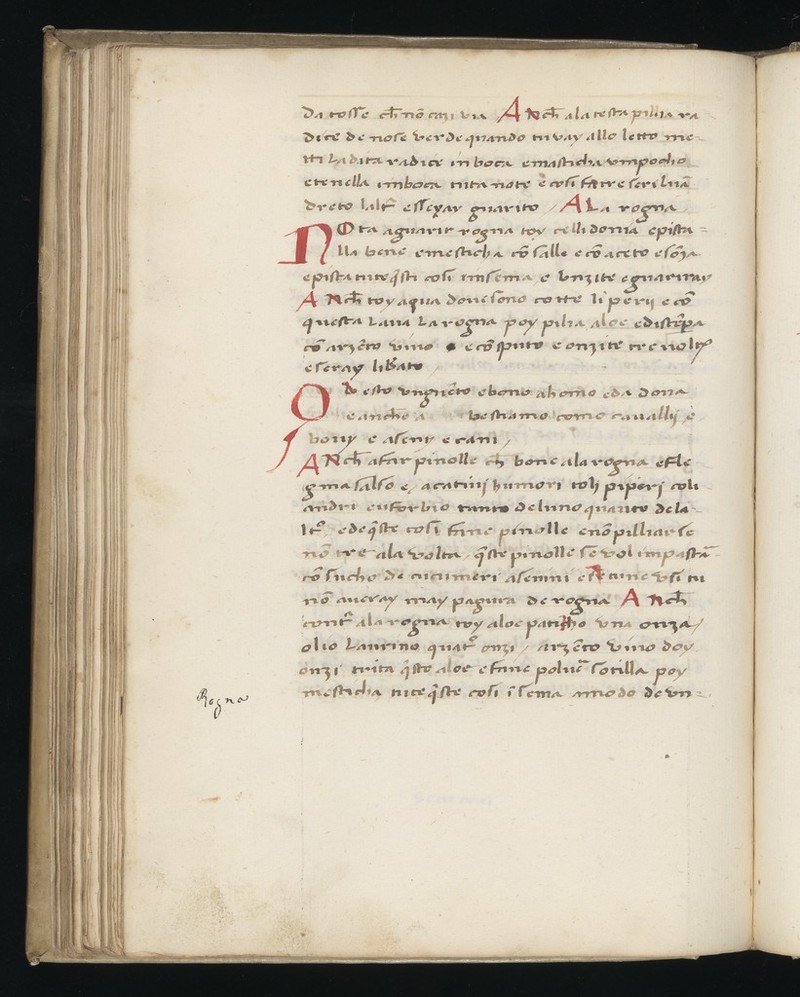 da tosse ch̄ nō cazi via Anch̄ ala testa pillia ra
dice de nose verde quando tu vay allo letto me
tti la dita radice in boca e masticha un pocho
e tenella imboca tuta note e cosi fa tre seri luā
dreto laltᵃ esseray guarito / A La rogna
NOta aguarir rogna toy cellidonia epista =
lla bene e mesticha cō salle e cō aceto e sōza
epista tute q̄sti cosi insema e unzite e guariray
Anch̄ toy aqua dove sono cotte li perij e cō
questa lava la rogna poy pilia aloe e distēpa
cō arzēto vivo e cō sputo e onzite tre volte
e seray libato
Q esto unguēto e bono ahomo e da dona
e ancho a bestiamo como cavallij e
bovy e aseni e cani /
ANch̄ a far pinolle ch̄ bone ala rogna e fle
gma salso e acativij humori tolj piperj coli
andri euforbio tanto deluno quanto dela
ltᵒ e de q̄ste cosi fane pinolle e nō pilliar se
nō tre ala volta q̄ste pinolle se vol impastā
cō sucho de cucumeri asenini e se tu ne usi tu
nō averay may pagura de rogna Anch̄
contᵃ ala rogna toy aloe paticho una onza /
olio laurino quatᵒ onzi / arzēto vivo doy
onzi trita q̄sto aloe e fane polue sotilla poy
mesticha tute q̄ste cosi īsema amodo de un =
Rogna